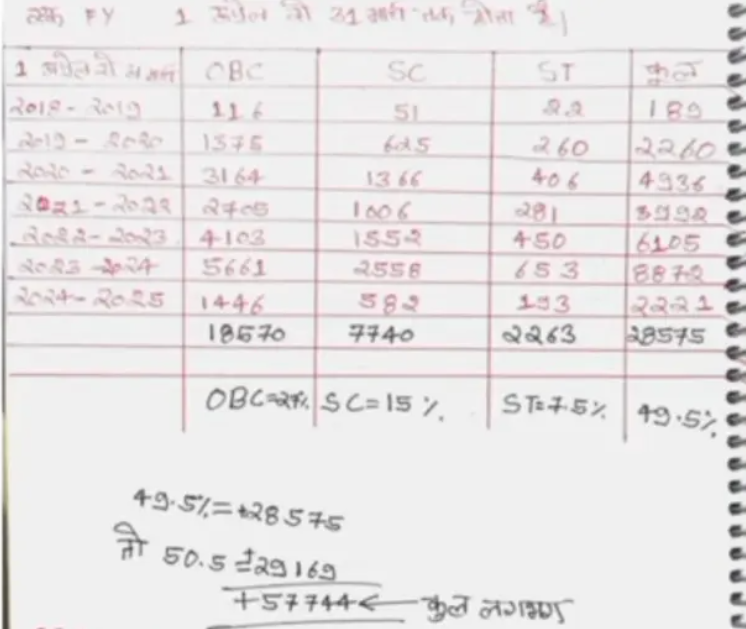 FY 1 अप्रैल से 31 मार्च तक होता है।
1 अप्रैल से 31 मार्च OBC SC ST कुल
2018-2019 116 51 22 189
2019-2020 1375 625 260 2260
2020-2021 3164 1366 406 4936
2021-2022 2705 1006 281 3992
2022-2023 4103 1552 450 6105
2023-2024 5661 2558 653 8872
2024-2025 1446 582 193 2221
18570 7740 2263 28575
OBC=27% SC=15%. ST=7.5% 49.5%
49.5%=28575
तो 50.5=29169
+57744← कुल लगभग